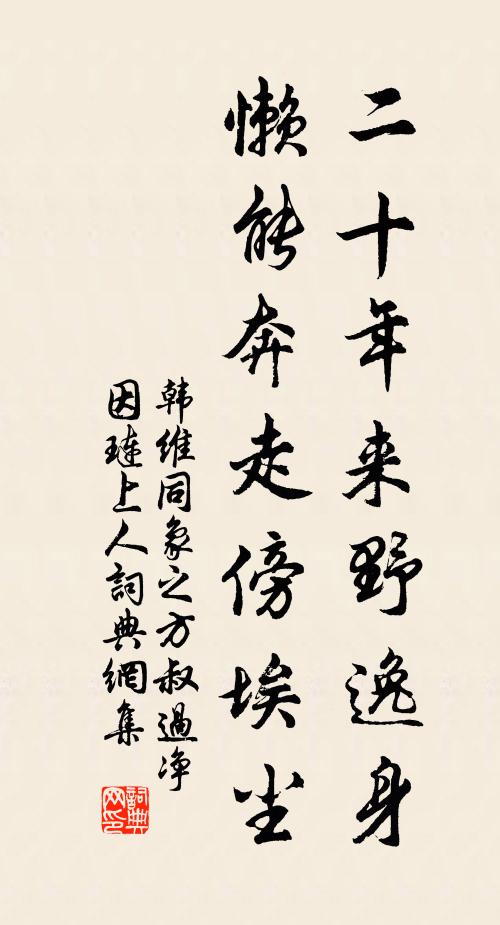 二十年来野逸身
懒能奔走傍埃尘
韩维同象之方叔過净
因璉上人詞典網集
詞典网印